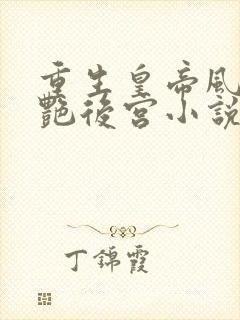 重生皇帝風
艷後宮小說
丁錦霞